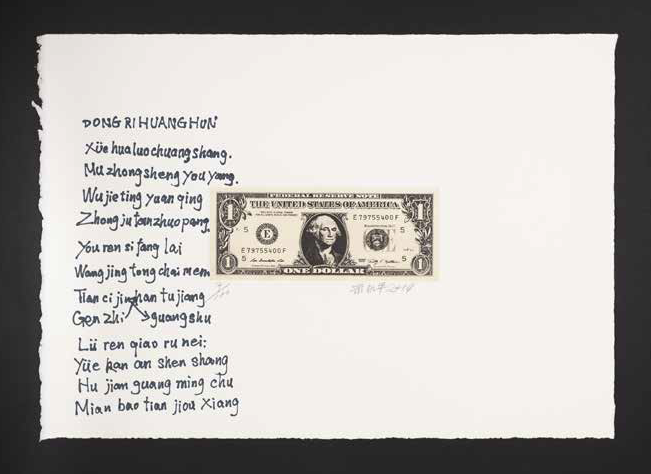 DONG RI HUANG HUN
Xüe hua luo chuang shang.
Mu zhong sheng you yang.
Wu jie ting yuan qing
Zhong ju tan zhuo pang.
You ren si fang lai
Wang jing tong chai mem
Tian ci jing han tu jiang
Gen zhi guang shu
Lü ren qiao ru nei:
Yüe kan an shen shang
Hu jian guang ming chu
Mian bao tian jiou xiang
FEDERAL RESERVE NOTE
THE UNITED STATES OF AMERICA
1
1
E 79755400 F
5
5
E
E 79755400 F
5
5
1
1
ONE DOLLAR
2014